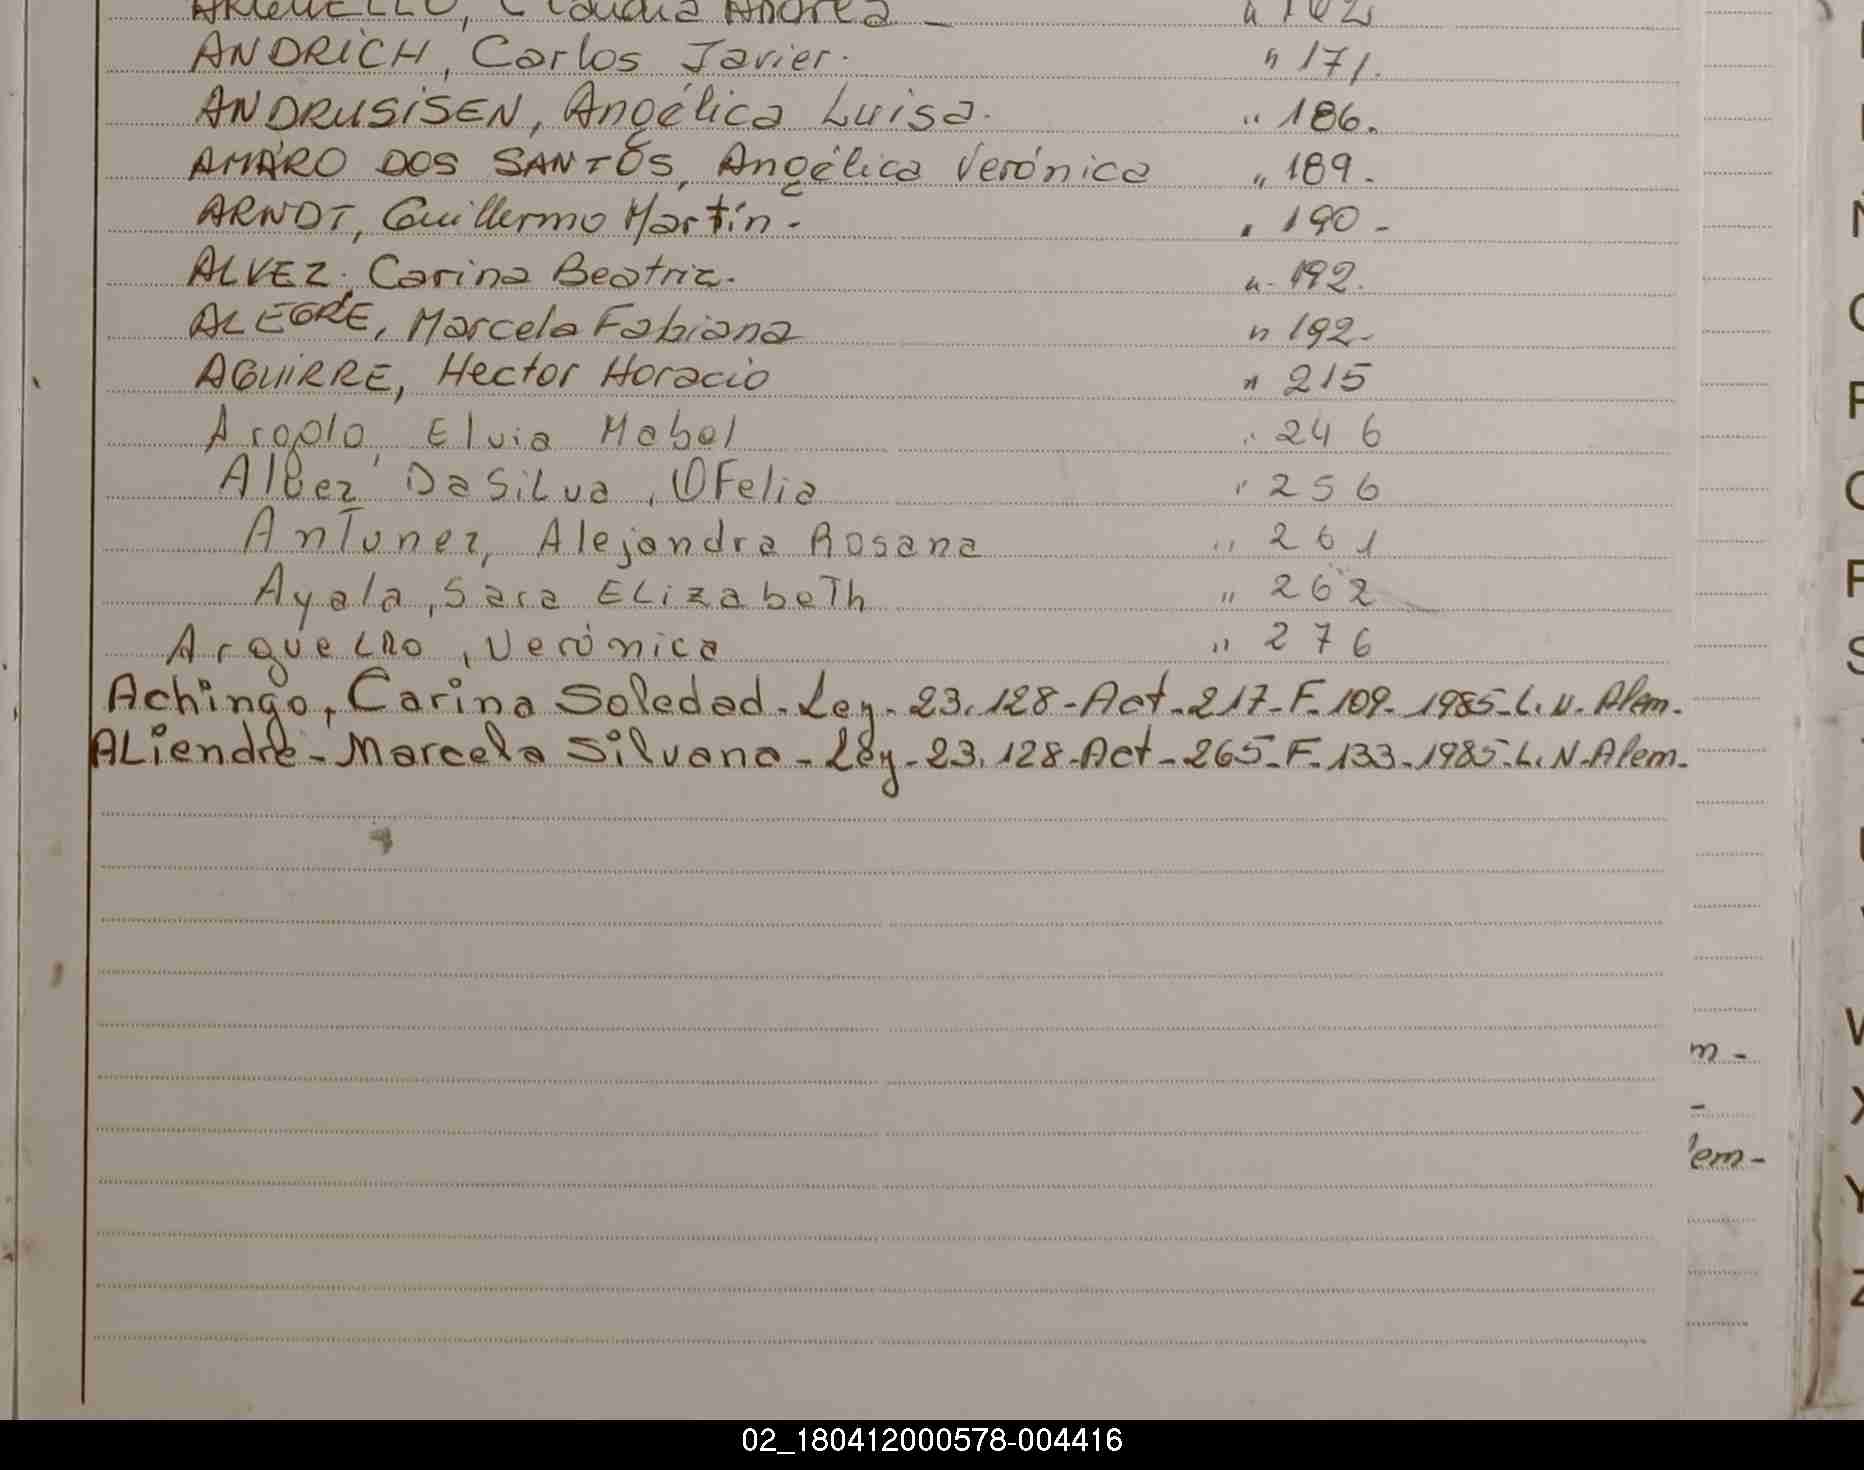 Claudia Andrea -
ANDRICH, Carlos Javier. " 171.
ANDRUSISEN, Angélica Luisa. " 186.
AMARO DOS SANTOS, Angélica Verónica " 189.
ARNDT, Guillermo Martín - " 190 -
ALVEZ, Carina Beatriz. " 192.
ALEGRE, Marcela Fabiana " 192-
AGUIRRE, Hector Horacio " 215
Elvia Mabel " 246
Albez Da Silva, OFelia " 256
Antunez, Alejandra Rosana " 261
Ayala, Sara ELizabeTh " 262
ArgueLLO, Verónica " 276
Achingo, Carina Soledad - Ley - 23.128 - Act - 217 - F - 109 - 1985 - L. N. Alem.
ALiendre - Marcela Silvana - Ley - 23.128 - Act - 265 - F - 133 - 1985 - L. N. Alem.
m -
-
em -
W
X
Y
Z
02_180412000578-004416